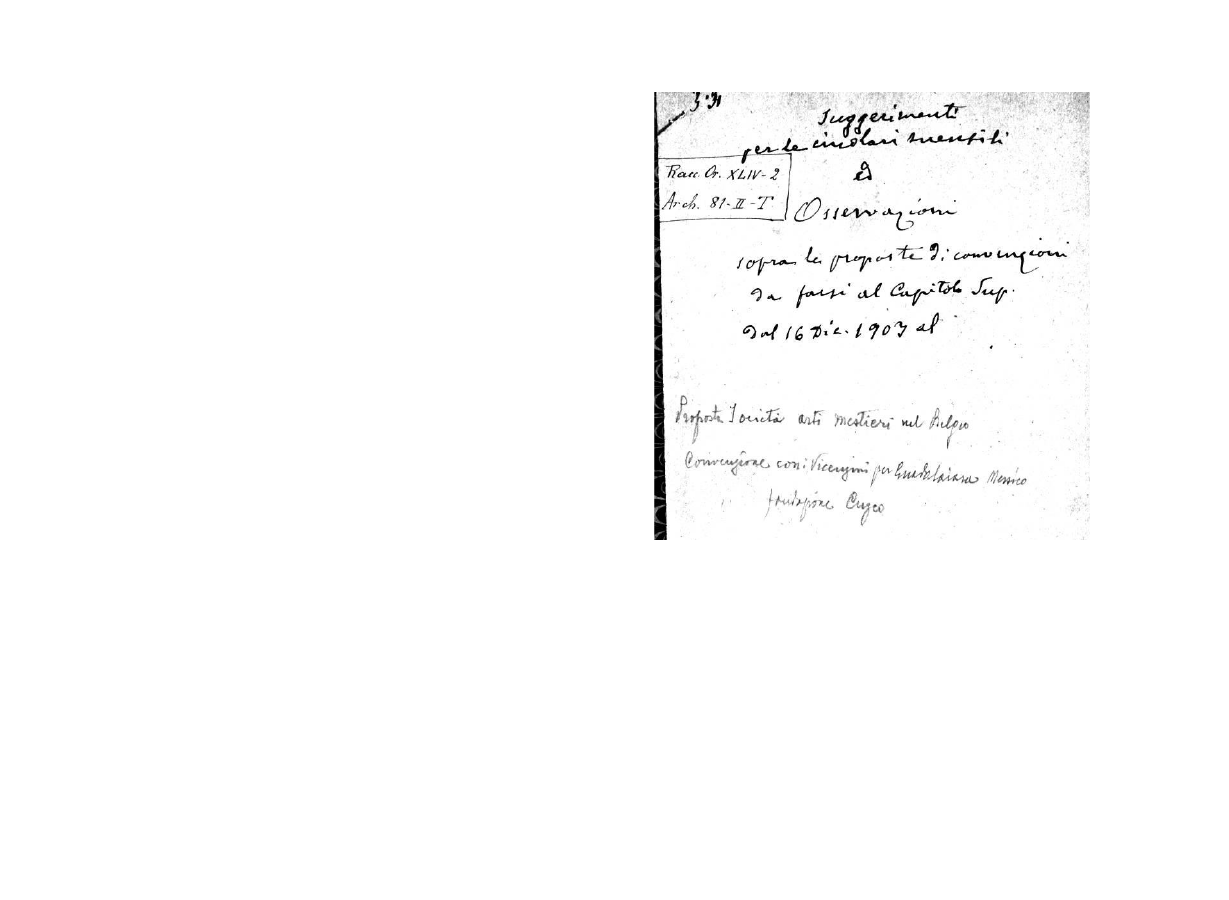 3.31
Suggerimenti
per le circolari mensili
ed
Racc. Or. XLIV-2
Arch. 81-II-T
Osservazioni
sopra le proposte di convenzioni
da farsi al Capitolo Sup.
Dal 16 Dic. 1903 al
Proposta Società arti mestieri nel Belgio
Convenzione con i Vicenzini per Guadalaiara Messico
fondazione Cuzco